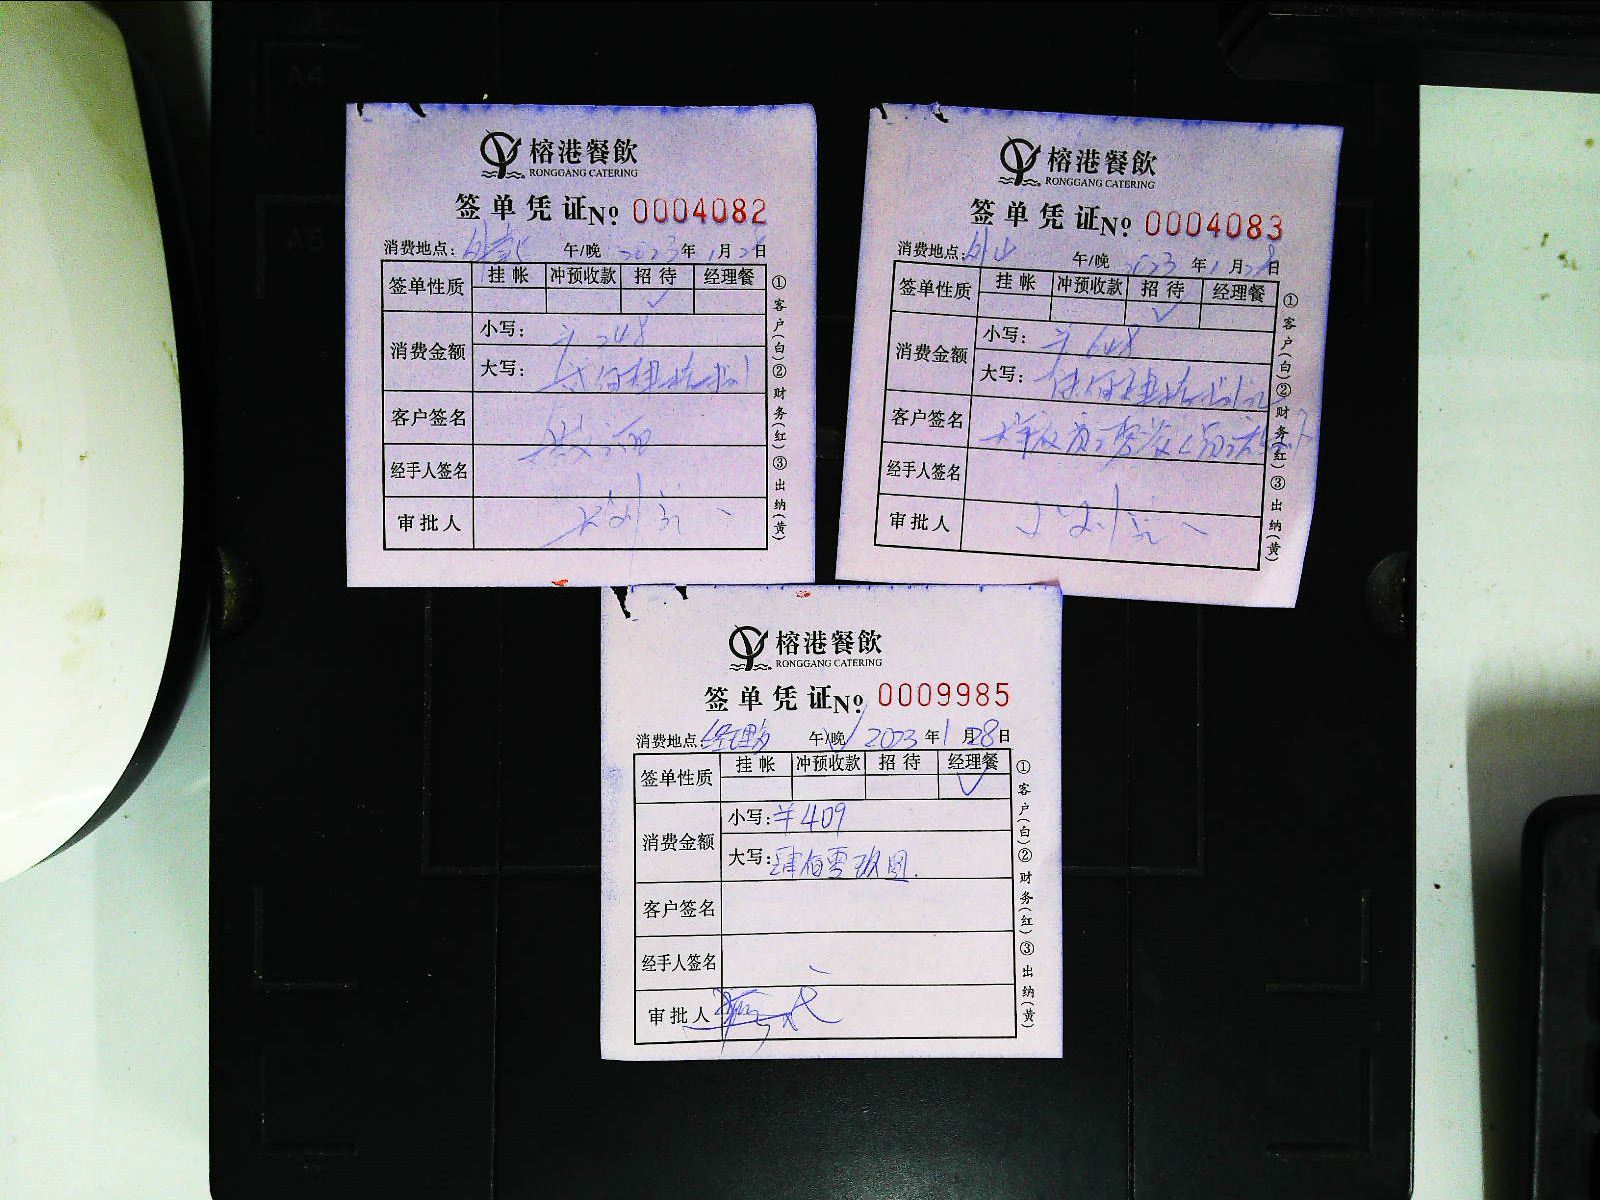 榕港餐飲
RONGGANG CATERING
签单凭证No 0004082
消费地点: 午/晚 2023年1月28日
签单性质 挂帐 冲预收款 招待 经理餐
✓
消费金额 小写: ¥248
大写: 贰佰肆拾捌
客户签名
经手人签名
审批人
①客户(白)②财务(红)③出纳(黄)
榕港餐飲
RONGGANG CATERING
签单凭证No 0004083
消费地点: 午/晚 2023年1月28日
签单性质 挂帐 冲预收款 招待 经理餐
✓
消费金额 小写: ¥648
大写: 陆佰肆拾捌元
客户签名
经手人签名
审批人
①客户(白)②财务(红)③出纳(黄)
榕港餐飲
RONGGANG CATERING
签单凭证No 0009985
消费地点 经理 午/晚 2023年1月28日
签单性质 挂帐 冲预收款 招待 经理餐
✓
消费金额 小写: ¥409
大写: 肆佰零玖圆.
客户签名
经手人签名
审批人
①客户(白)②财务(红)③出纳(黄)
A4
A5